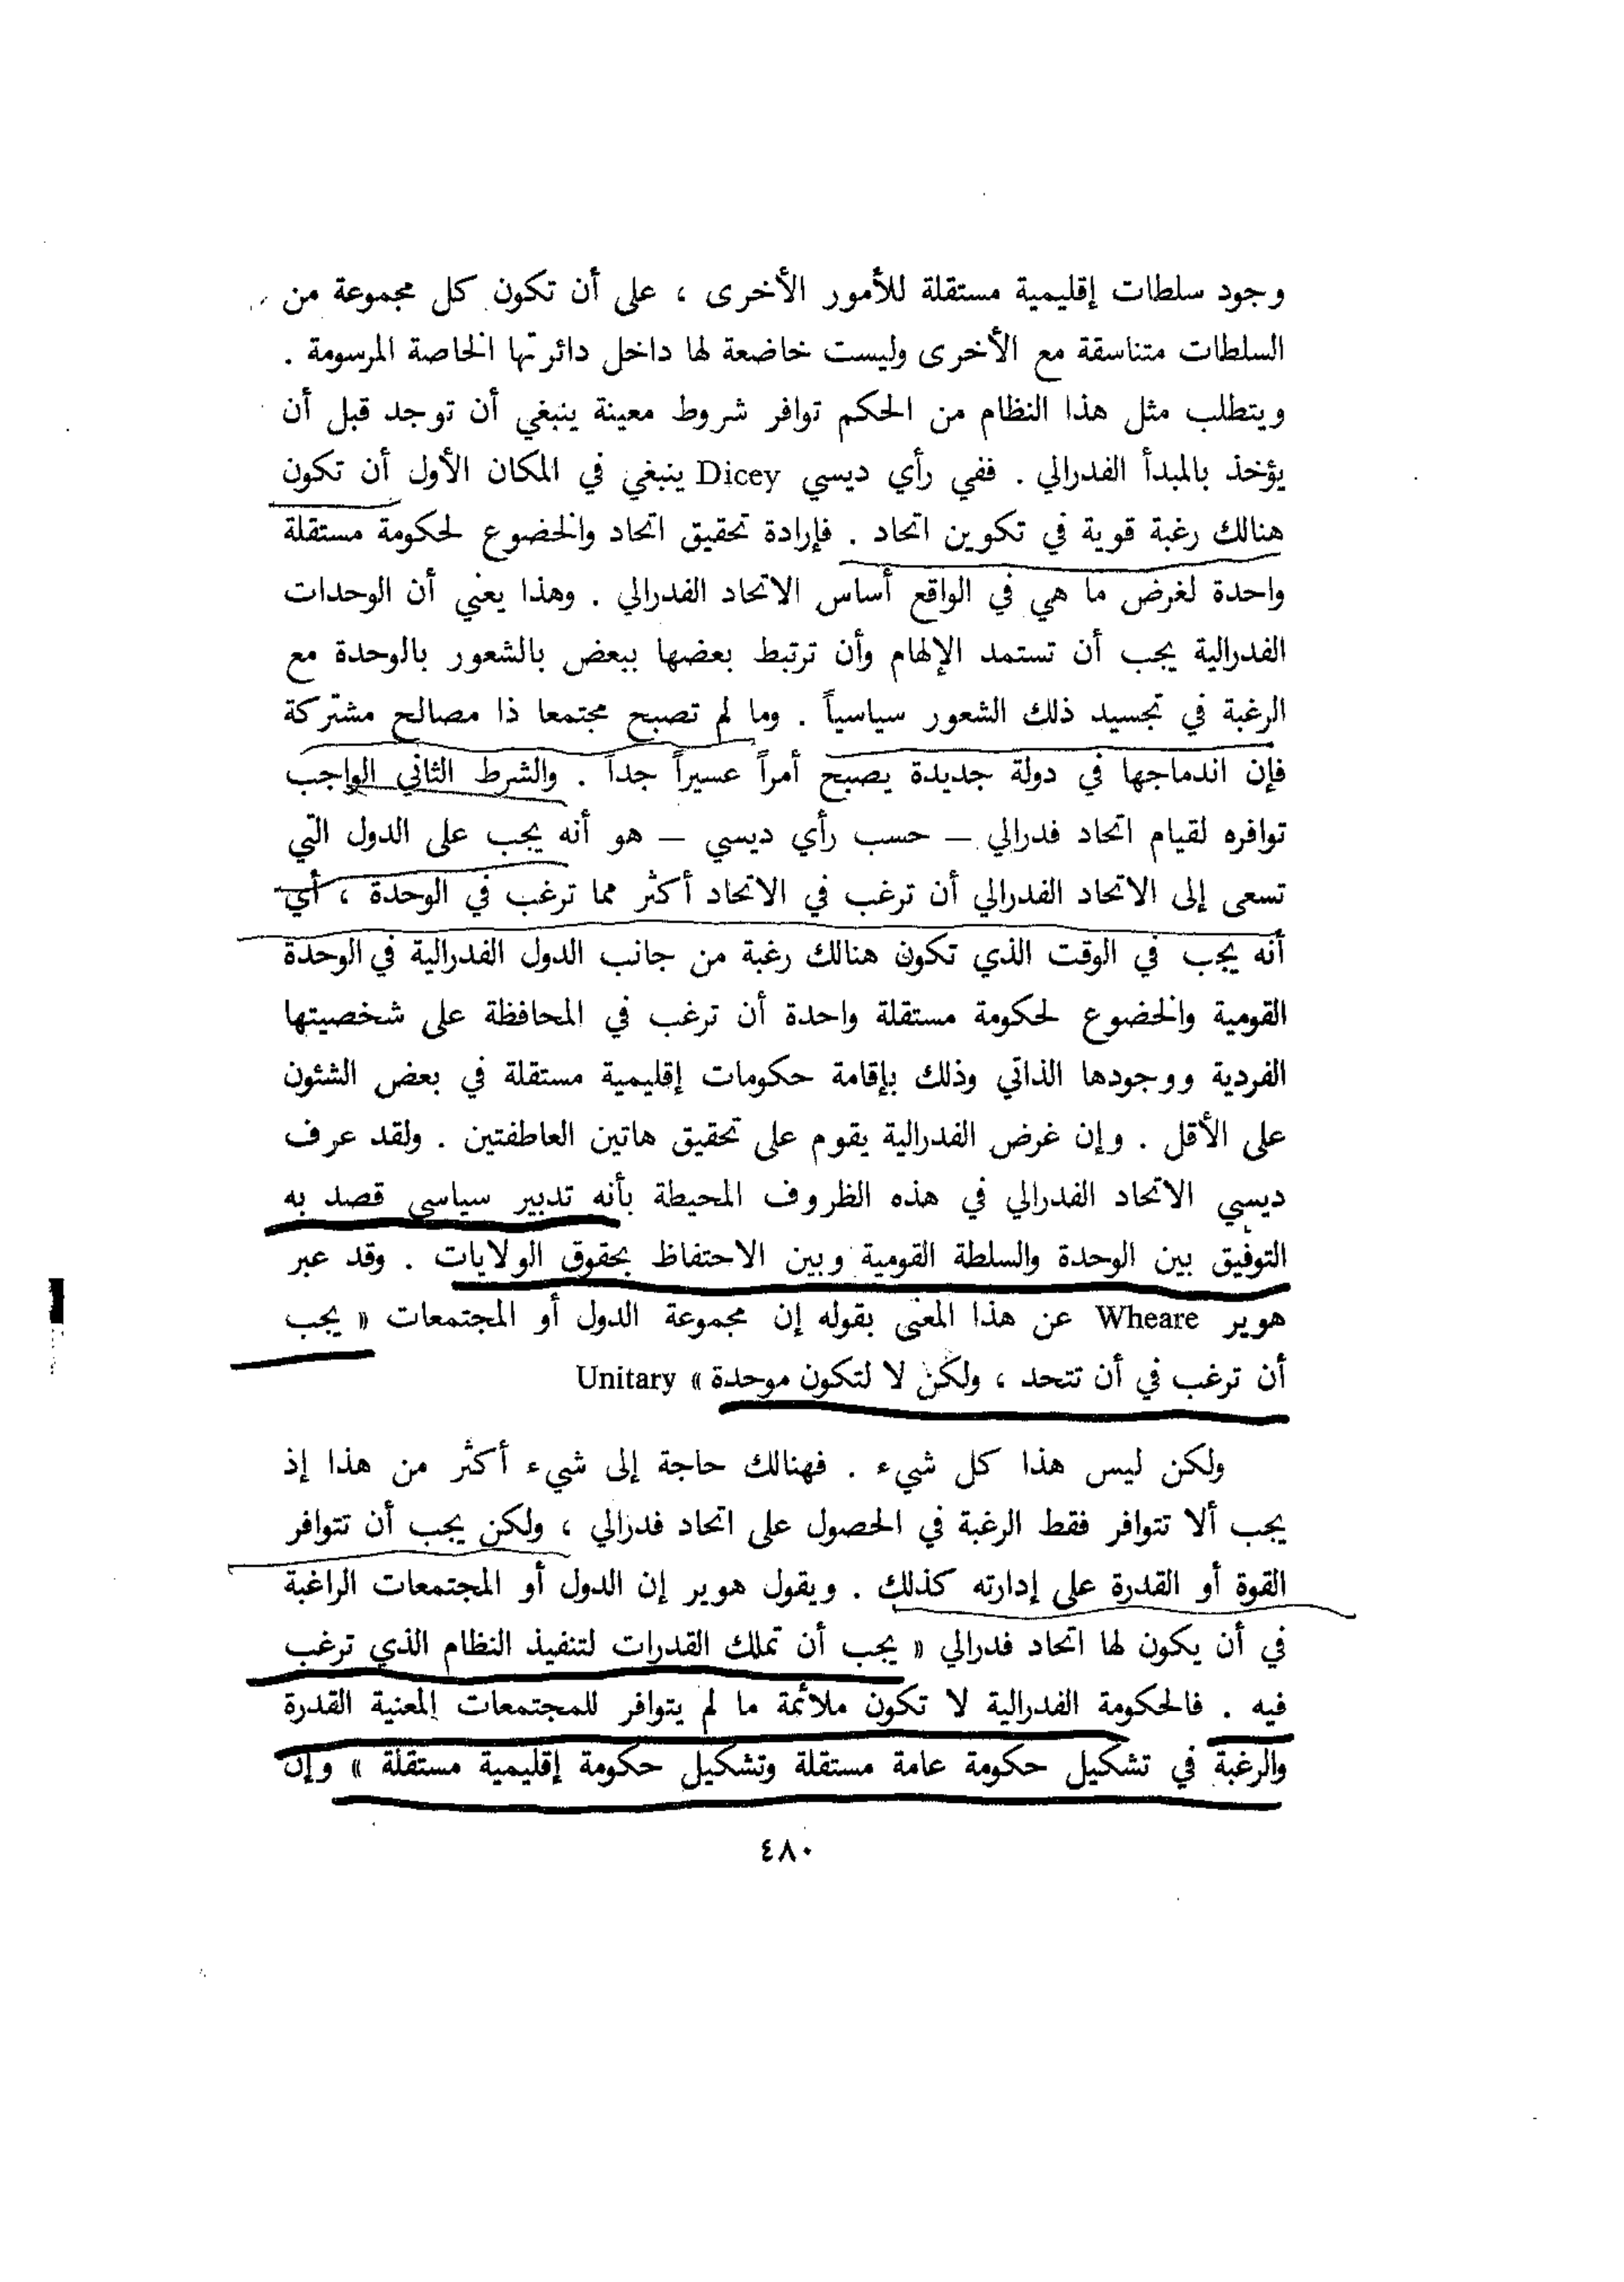 وجود سلطات إقليمية مستقلة للأمور الأخرى ، على أن تكون كل مجموعة من
السلطات متناسقة مع الأخرى وليست خاضعة لها داخل دائرتها الخاصة المرسومة .
ويتطلب مثل هذا النظام من الحكم توافر شروط معينة ينبغي أن توجد قبل أن
يؤخذ بالمبدأ الفدرالي . ففي رأي ديسي Dicey ينبغي في المكان الأول أن تكون
هنالك رغبة قوية في تكوين اتحاد . فإرادة تحقيق اتحاد والخضوع لحكومة مستقلة
واحدة لغرض ما هي في الواقع أساس الاتحاد الفدرالي . وهذا يعني أن الوحدات
الفدرالية يجب أن تستمد الإلهام وأن ترتبط بعضها ببعض بالشعور بالوحدة مع
الرغبة في تجسيد ذلك الشعور سياسياً . وما لم تصبح مجتمعا ذا مصالح مشتركة
فإن اندماجها في دولة جديدة يصبح أمراً عسيراً جداً . والشرط الثاني الواجب
توافره لقيام اتحاد فدرالي – حسب رأي ديسي – هو أنه يجب على الدول التي
تسعى إلى الاتحاد الفدرالي أن ترغب في الاتحاد أكثر مما ترغب في الوحدة ، أي
أنه يجب في الوقت الذي تكون هنالك رغبة من جانب الدول الفدرالية في الوحدة
القومية والخضوع لحكومة مستقلة واحدة أن ترغب في المحافظة على شخصيتها
الفردية ووجودها الذاتي وذلك بإقامة حكومات إقليمية مستقلة في بعض الشئون
على الأقل . وإن غرض الفدرالية يقوم على تحقيق هاتين العاطفتين . ولقد عرف
ديسي الاتحاد الفدرالي في هذه الظروف المحيطة بأنه تدبير سياسي قصد به
التوفيق بين الوحدة والسلطة القومية وبين الاحتفاظ بحقوق الولايات . وقد عبر
هوير Wheare عن هذا المعنى بقوله إن مجموعة الدول أو المجتمعات « يجب
أن ترغب في أن تتحد ، ولكن لا لتكون موحدة » Unitary
ولكن ليس هذا كل شيء . فهنالك حاجة إلى شيء أكثر من هذا إذ
يجب ألا تتوافر فقط الرغبة في الحصول على اتحاد فدرالي ، ولكن يجب أن تتوافر
القوة أو القدرة على إدارته كذلك . ويقول هوير إن الدول أو المجتمعات الراغبة
في أن يكون لها اتحاد فدرالي « يجب أن تملك القدرات لتنفيذ النظام الذي ترغب
فيه . فالحكومة الفدرالية لا تكون ملائمة ما لم يتوافر للمجتمعات المعنية القدرة
والرغبة في تشكيل حكومة عامة مستقلة وتشكيل حكومة إقليمية مستقلة » وإن
٤٨٠